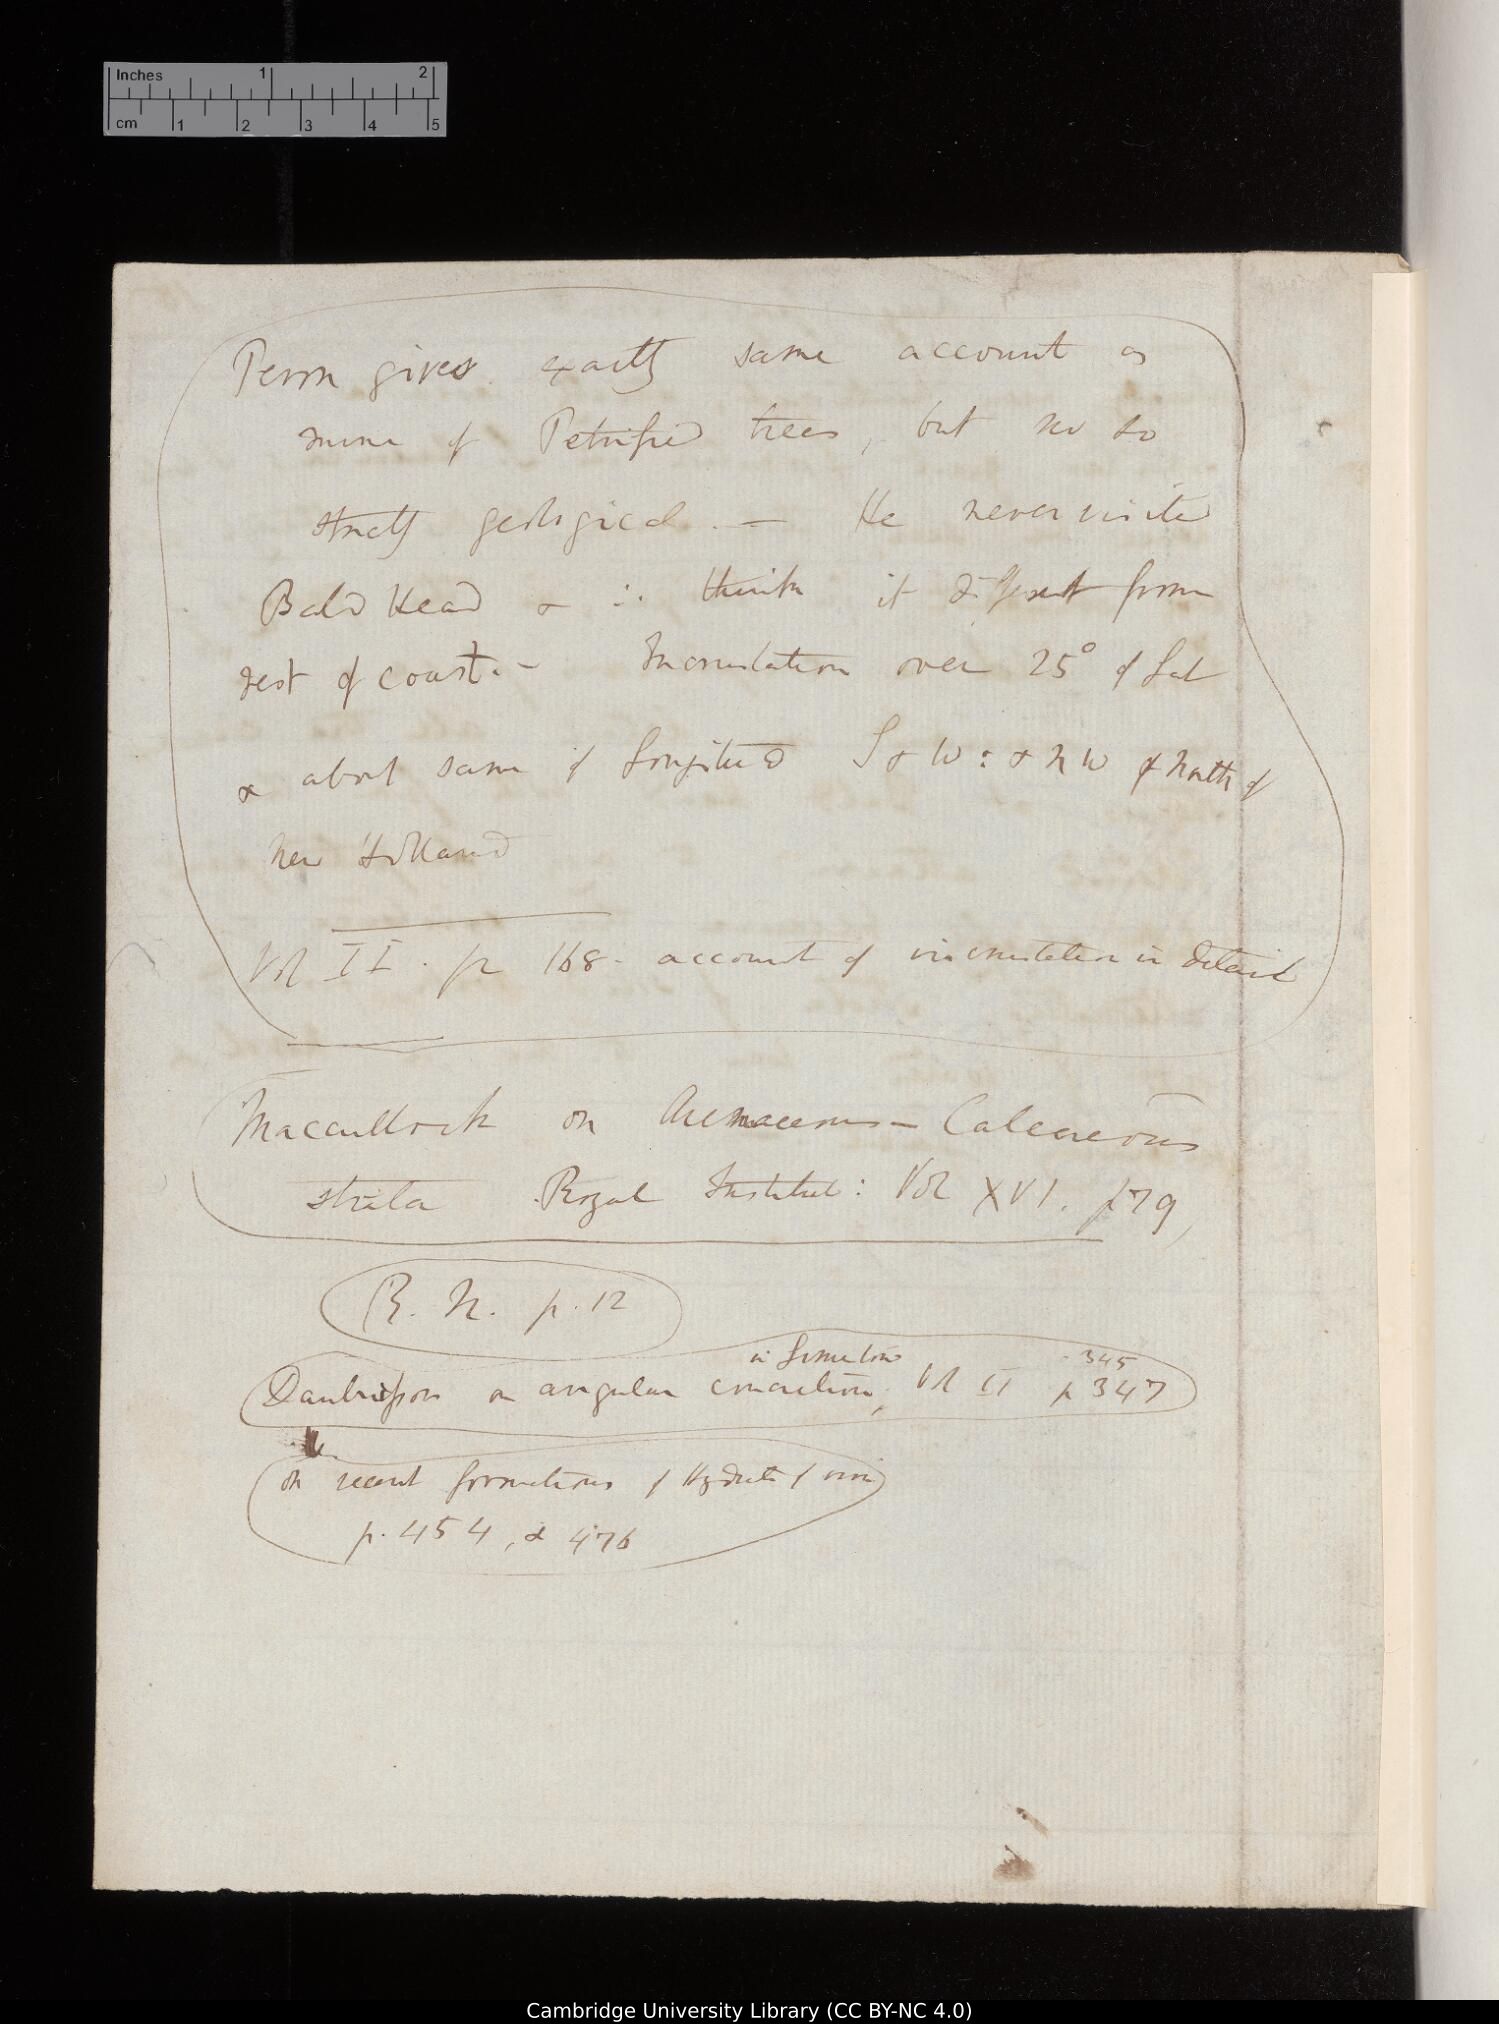 Inches 1 2
cm 1 2 3 4 5
Peron gives exactly same account as
mine of Petrified trees, but no so
strictly geological. — He never visited
Bald Head & ∴ thinks it different from
rest of coast. — Incrustation over 25° of Lat
& about same of Longitude S & W: & NW & North of
New Holland
Vol II. p 168. account of incrustation in detail
Macculloch on Arenaceous – Calcareous
strata Royal Institut: Vol XVI. p79,
R. N. p. 12
in limestone 345
Daubuisson on angular concretions, Vol II p 347
On recent formations of Hydrate of iron
p. 454, & 476
Cambridge University Library (CC BY-NC 4.0)